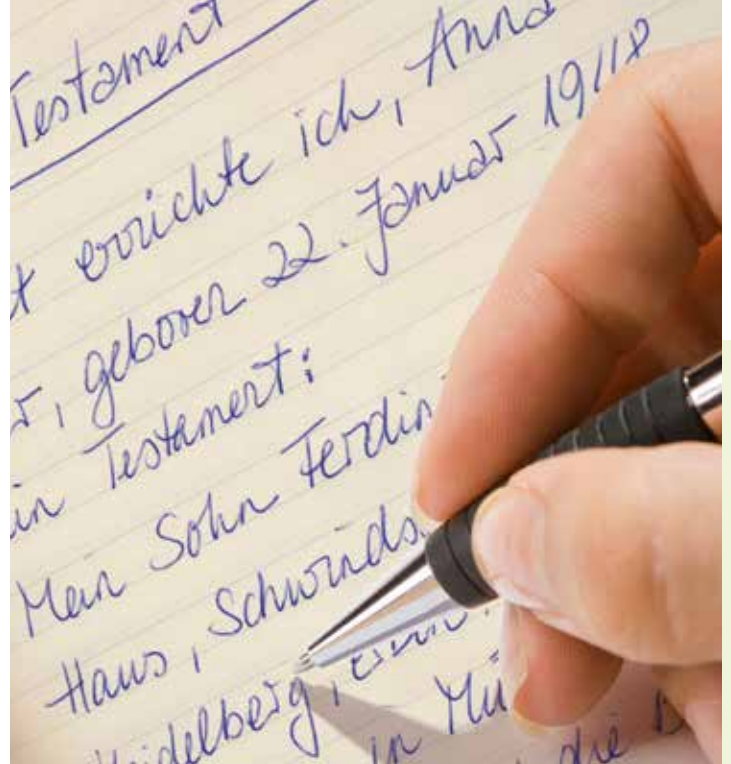 Testament
errichte ich, Anna
geboren 22. Januar 1948
Testament:
Mein Sohn
Haus,
Heidelberg,
in
die